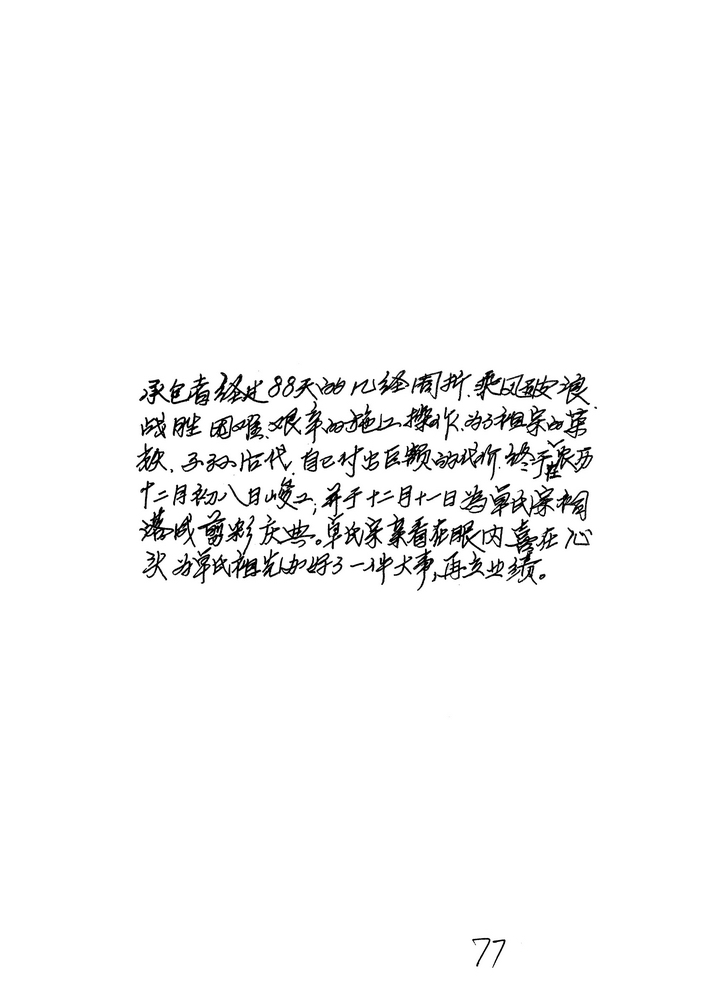 承包者经过88天的几经周折.乘风破浪
战胜困难、艰辛的施工操作、为了祖宗的英
、子孙后代、自己付出巨额的代价、终于在农历
十二月初八日竣工;并于十二月十一日为单氏宗祠
落成剪彩庆典。单氏宗亲看在眼内喜在心
头为单氏祖先办好了一件大事,再立业绩。
77